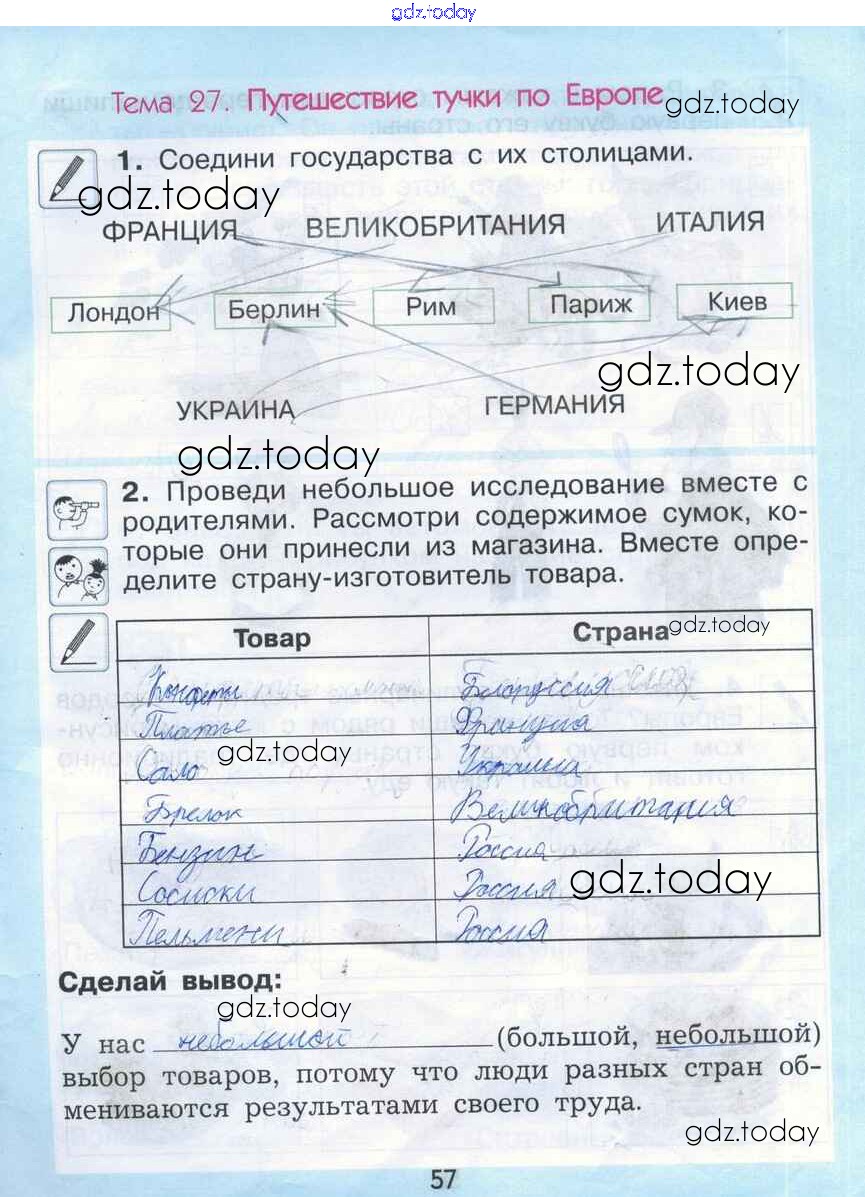 gdz.today
Тема 27. Путешествие тучки по Европе gdz.today
1. Соедини государства с их столицами.
gdz.today
ФРАНЦИЯ ВЕЛИКОБРИТАНИЯ ИТАЛИЯ
Лондон Берлин Рим Париж Киев
gdz.today
УКРАИНА ГЕРМАНИЯ
gdz.today
2. Проведи небольшое исследование вместе с
родителями. Рассмотри содержимое сумок, ко-
торые они принесли из магазина. Вместе опре-
делите страну-изготовитель товара.
Товар Страна gdz.today
Конфеты Белоруссия
Платье Франция
gdz.today
Сало Украина
Брелок Великобритания
Бензин Россия
gdz.today
Сосиски Россия
Пельмени Россия
Сделай вывод:
gdz.today
У нас небольшой (большой, небольшой)
выбор товаров, потому что люди разных стран об-
мениваются результатами своего труда.
gdz.today
57